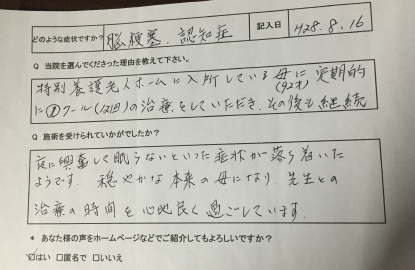 どのような症状ですか? 脳梗塞、認知症 記入日 H28.8.16
Q 当院を選んでくださった理由を教えて下さい。
特別養護老人ホームに入所している母に(92才)定期的
に①クール(12回)の治療をしていただき、その後も継続
Q 施術を受けられていかがでしたか?
夜に興奮して眠らないといった症状が落ち着いた
ようです。穏やかな本来の母になり、先生との
治療の時間を心地良く過ごしています。
* あなた様の声をホームページなどでご紹介してもよろしいですか?
☑はい □匿名で □いいえ